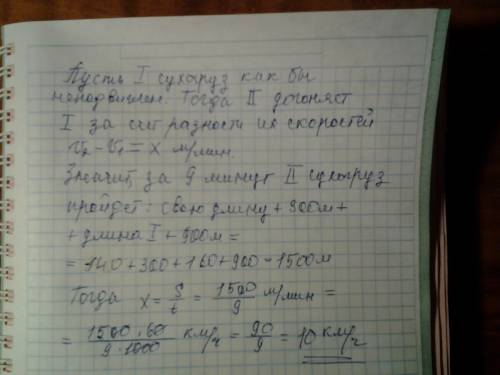 Пусть I сухогруз как бы
неподвижен. Тогда II догоняет
I за счет разности их скоростей
v₂ - v₁ = x м/мин.
Значит, за 9 минут II сухогруз
пройдет: свою длину + 300м +
+ длина I + 900м =
= 140 + 300 + 160 + 900 = 1500м
Тогда x = S/t = 1500/9 м/мин =
= 1500·60/9·1000 км/ч = 90/9 = 10 км/ч